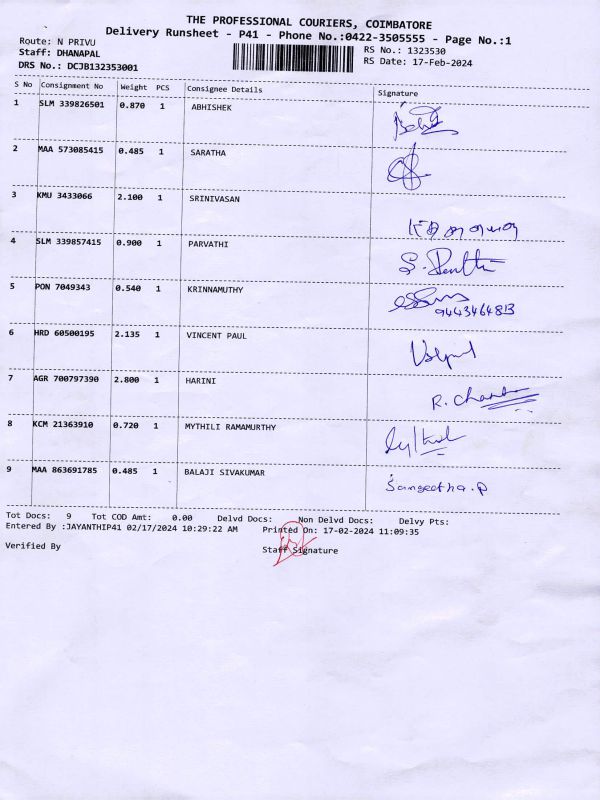 THE PROFESSIONAL COURIERS, COIMBATORE
Delivery Runsheet - P41 - Phone No.:0422-3505555 - Page No.:1
Route: N PRIVU
RS No.: 1323530
Staff: DHANAPAL
RS Date: 17-Feb-2024
DRS No.: DCJB132353001
S No Consignment No Weight PCS Consignee Details Signature
1 SLM 339826501 0.870 1 ABHISHEK
2 MAA 573085415 0.485 1 SARATHA
3 KMU 3433066 2.100 1 SRINIVASAN
4 SLM 339857415 0.900 1 PARVATHI
5 PON 7049343 0.540 1 KRINNAMUTHY
9443464813
6 HRD 60500195 2.135 1 VINCENT PAUL
7 AGR 700797390 2.800 1 HARINI
R. Chandra
8 KCM 21363910 0.720 1 MYTHILI RAMAMURTHY
9 MAA 863691785 0.485 1 BALAJI SIVAKUMAR Sangeetha.P
Tot Docs: 9 Tot COD Amt: 0.00 Delvd Docs: Non Delvd Docs: Delvy Pts:
Entered By :JAYANTHIP41 02/17/2024 10:29:22 AM Printed On: 17-02-2024 11:09:35
Verified By Staff Signature